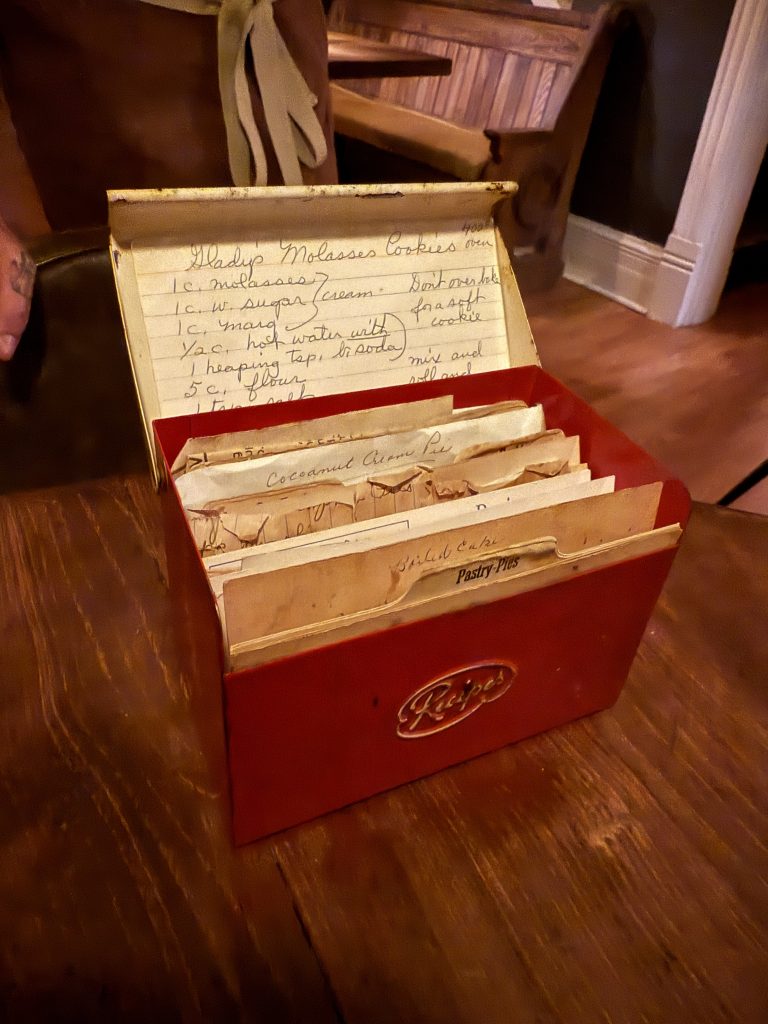 Glady's Molasses Cookies 400 oven
1 c. molasses
1 c. w. sugar } cream.
1 c. marg
1/2 c. hot water with
1 heaping tsp. b. soda
5 c. flour
1 tsp. salt
Don't over bake
for a soft
cookie
mix and
roll and
Cocoanut Cream Pie
Boiled Cake
Pastry-Pies
Recipes